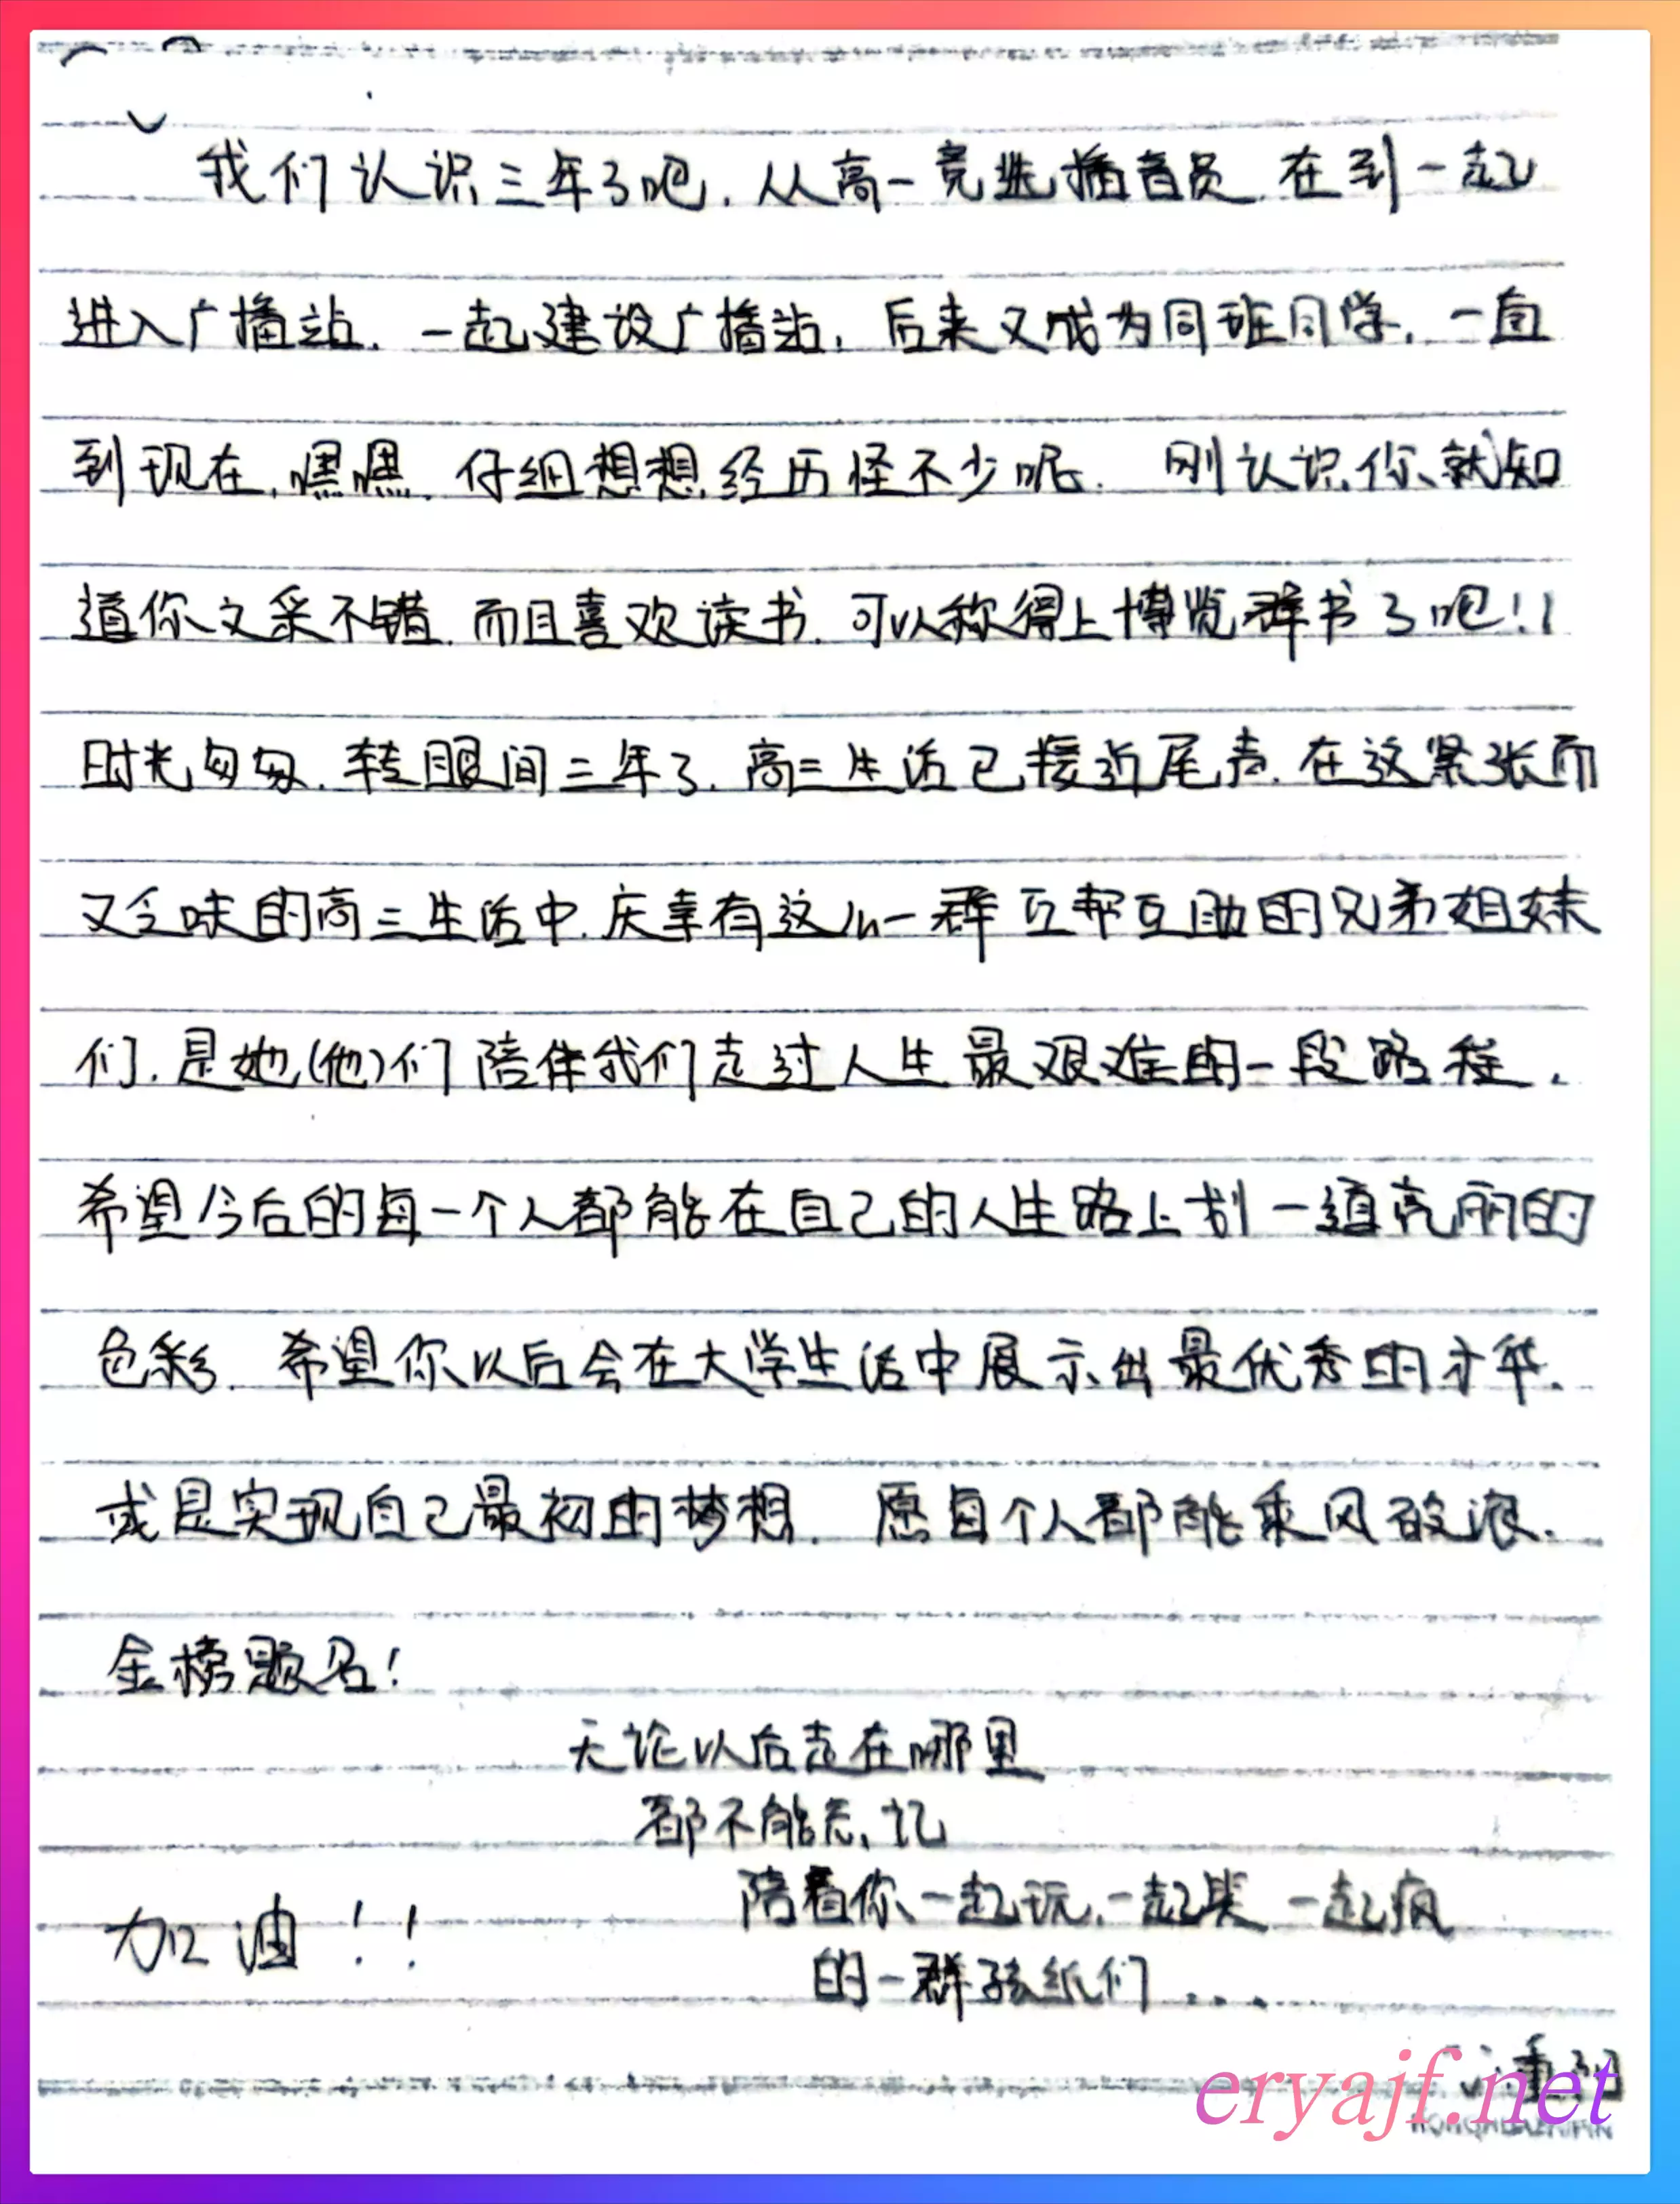 我们认识三年了吧.从高一竞选播音员.在到一起
进入广播站.一起建设广播站,后来又成为同班同学.一直
到现在,嘿嘿.仔细想想经历怪不少呢.刚认识你就知
道你文采不错.而且喜欢读书.可以称得上博览群书了吧!!
时光匆匆.转眼间三年了.高三生活已接近尾声.在这紧张而
又乏味的高三生活中.庆幸有这么一群互帮互助的兄弟姐妹
们.是她(他)们陪伴我们走过人生最艰难的一段路程.
希望今后的每一个人都能在自己的人生路上划一道亮丽的
色彩.希望你以后会在大学生活中展示出最优秀的才华.
或是实现自己最初的梦想.愿每个人都能乘风破浪.
金榜题名!
无论以后走在哪里
都不能忘记
陪着你一起玩.一起哭 一起疯
的一群孩纸们...
加油!!
eryajf.net